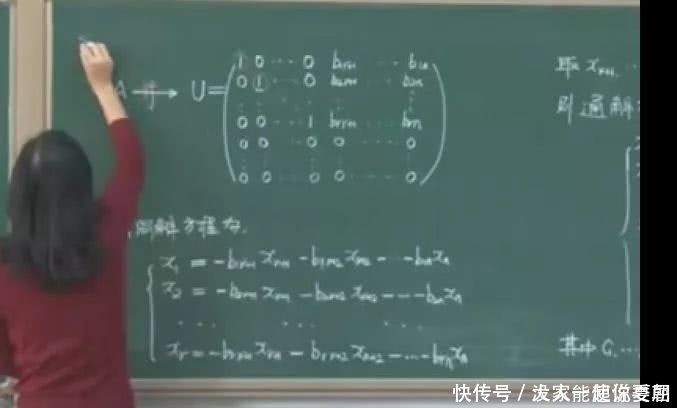 A 行→ U=
1 0 ⋯ 0 b₁ᵣ₊₁ ⋯ b₁ₙ
0 1 ⋯ 0 b₂ᵣ₊₁ ⋯ b₂ₙ
⋮ ⋮ ⋮ ⋮ ⋮
0 0 ⋯ 1 bᵣᵣ₊₁ ⋯ bᵣₙ
0 0 ⋯ 0 0 ⋯ 0
⋮ ⋮ ⋮ ⋮
0 0 ⋯ 0 0 ⋯ 0
同解方程为.
x₁ = -b₁ᵣ₊₁xᵣ₊₁ - b₁ᵣ₊₂xᵣ₊₂ - ⋯ - b₁ₙxₙ
x₂ = -b₂ᵣ₊₁xᵣ₊₁ - b₂ᵣ₊₂xᵣ₊₂ - ⋯ - b₂ₙxₙ
⋯ ⋯ ⋯
xᵣ = -bᵣᵣ₊₁xᵣ₊₁ - bᵣᵣ₊₂xᵣ₊₂ - ⋯ - bᵣₙxₙ
取 xᵣ₊₁, ⋯
则通解
其中 C, ⋯
快传号/